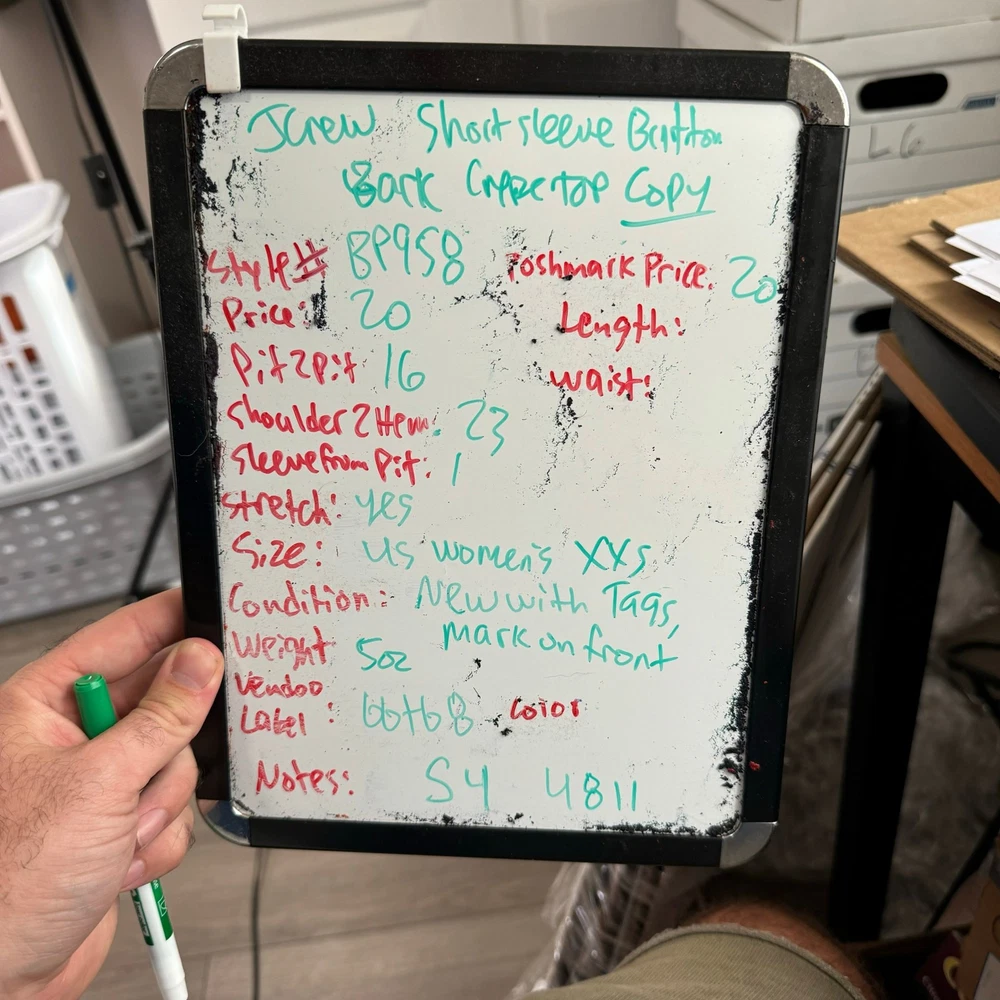 JCrew Short sleeve Button
Back Crepe top Copy
Style# BP958 Poshmark Price: 20
Price: 20 Length:
Pit2Pit 16 waist:
Shoulder2Hem: 23
Sleeve from Pit: 1
Stretch: yes
Size: US women's XXS
Condition: New with Tags,
mark on front
Weight 5oz
Vendoo
Label: Color
Notes: S4 4811
L6